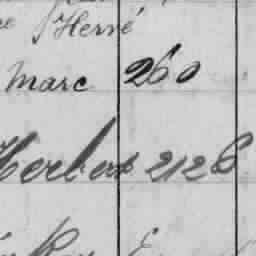 Hervé
Marc 260
Herbot 2126